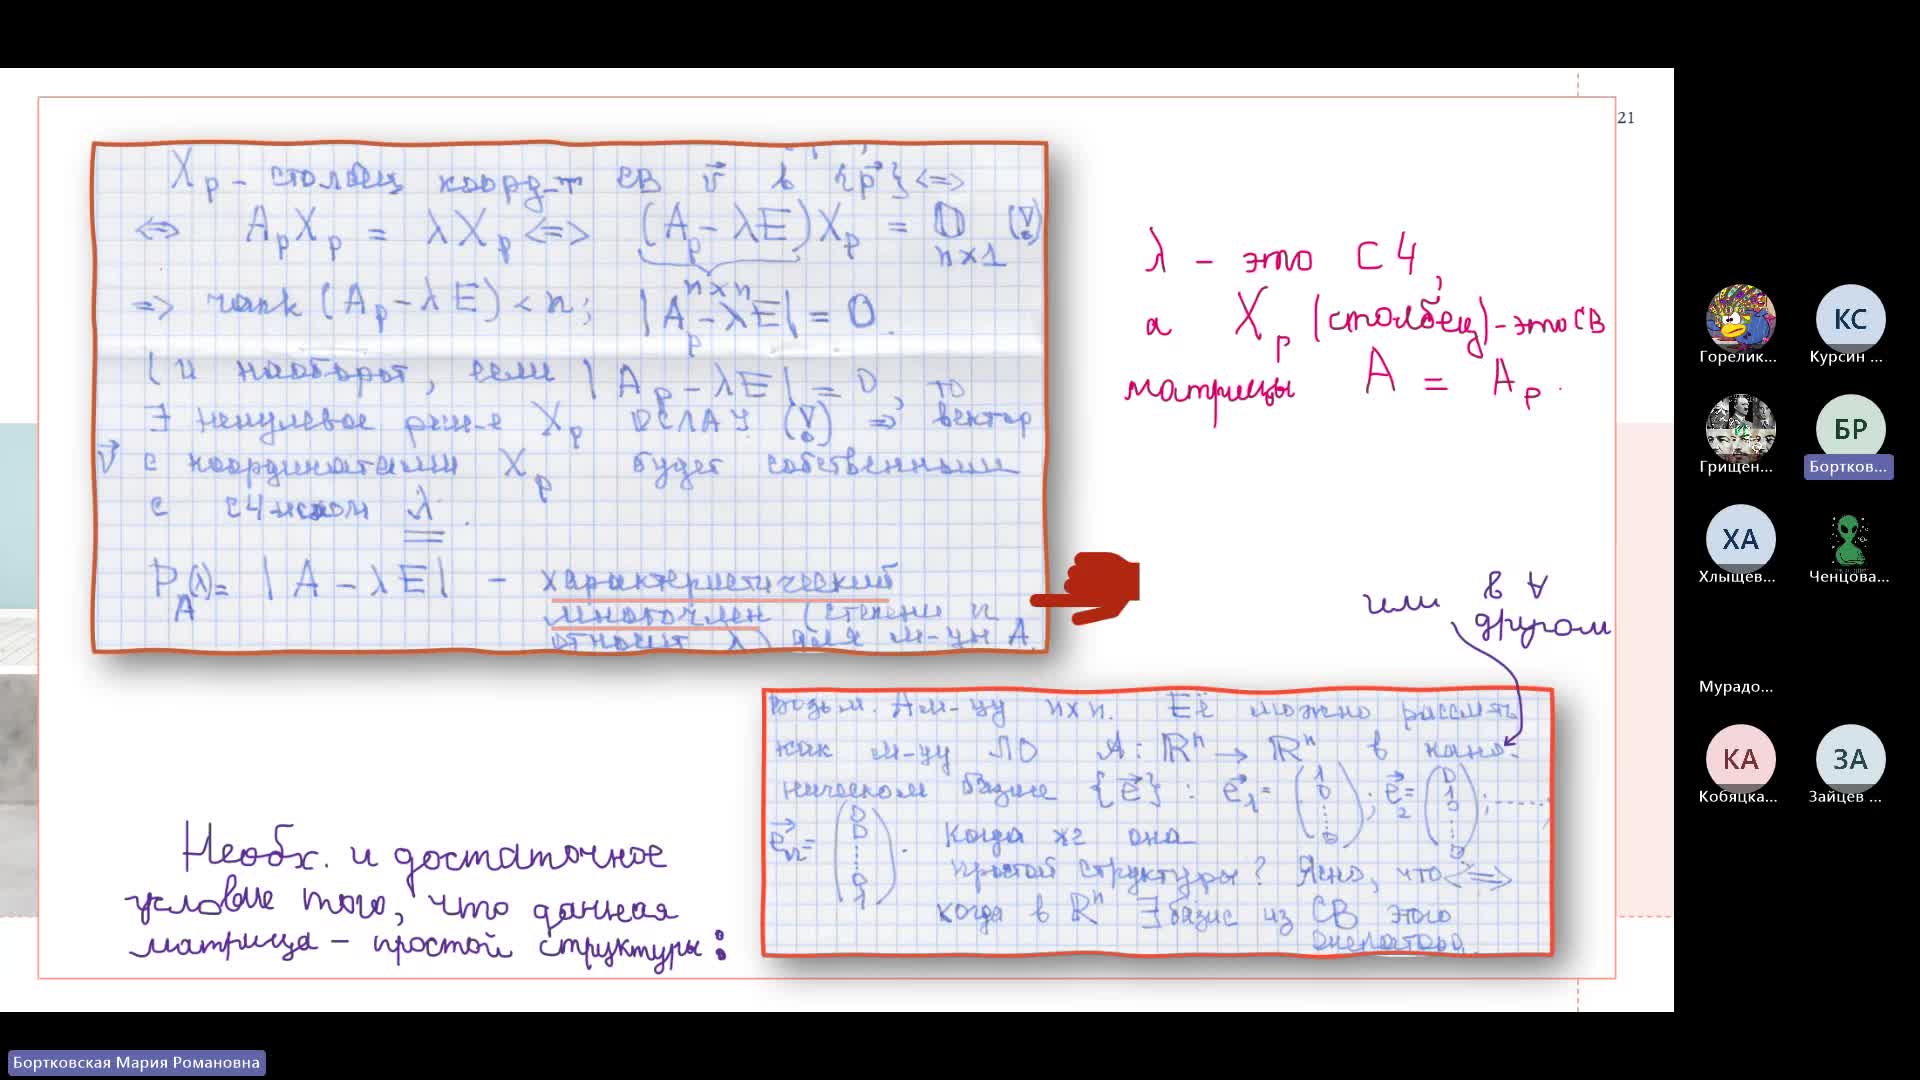 21
X_p - столбец коорд-т СВ v⃗ в {p⃗} <=>
<=> A_p X_p = λX_p <=> (A_p - λE) X_p = 𝕆
n×n
n×1
=> rank (A_p - λE) < n; |A_p - λE| = 0.
(и наоборот, если |A_p - λE| = 0, то
∃ ненулевое реш-е X_p ОСЛАУ (∇) => вектор
v⃗ с координатами X_p будет собственным
с СЧислом λ.
P_A(λ) = |A - λE| - характеристический
многочлен (степени n
относит λ) для м-цы A.
λ - это СЧ,
а X_p (столбец) - это СВ
матрицы A = A_p.
или в ∀
другом
Возьм. A м-цу n×n. Её можно рассм-ть
как м-цу ЛО A: ℝⁿ → ℝⁿ в кано-
ническом базисе {e⃗}: e⃗_1 = (1 0 ⋮ 0); e⃗_2 = (0 1 0 ⋮ 0); ....
e⃗_n = (0 0 ⋮ 0 1). Когда же она
простой структуры? Ясно, что <=>
когда в ℝⁿ ∃ базис из СВ этого
оператора.
Необх. и достаточное
условие того, что данная
матрица - простой структуры:
Горелик...
Курсин ...
КС
Грищен...
БР
Бортков...
ХА
Хлыщев...
Ченцова...
Мурадо...
КА
Кобяцка...
ЗА
Зайцев ...
Бортковская Мария Романовна